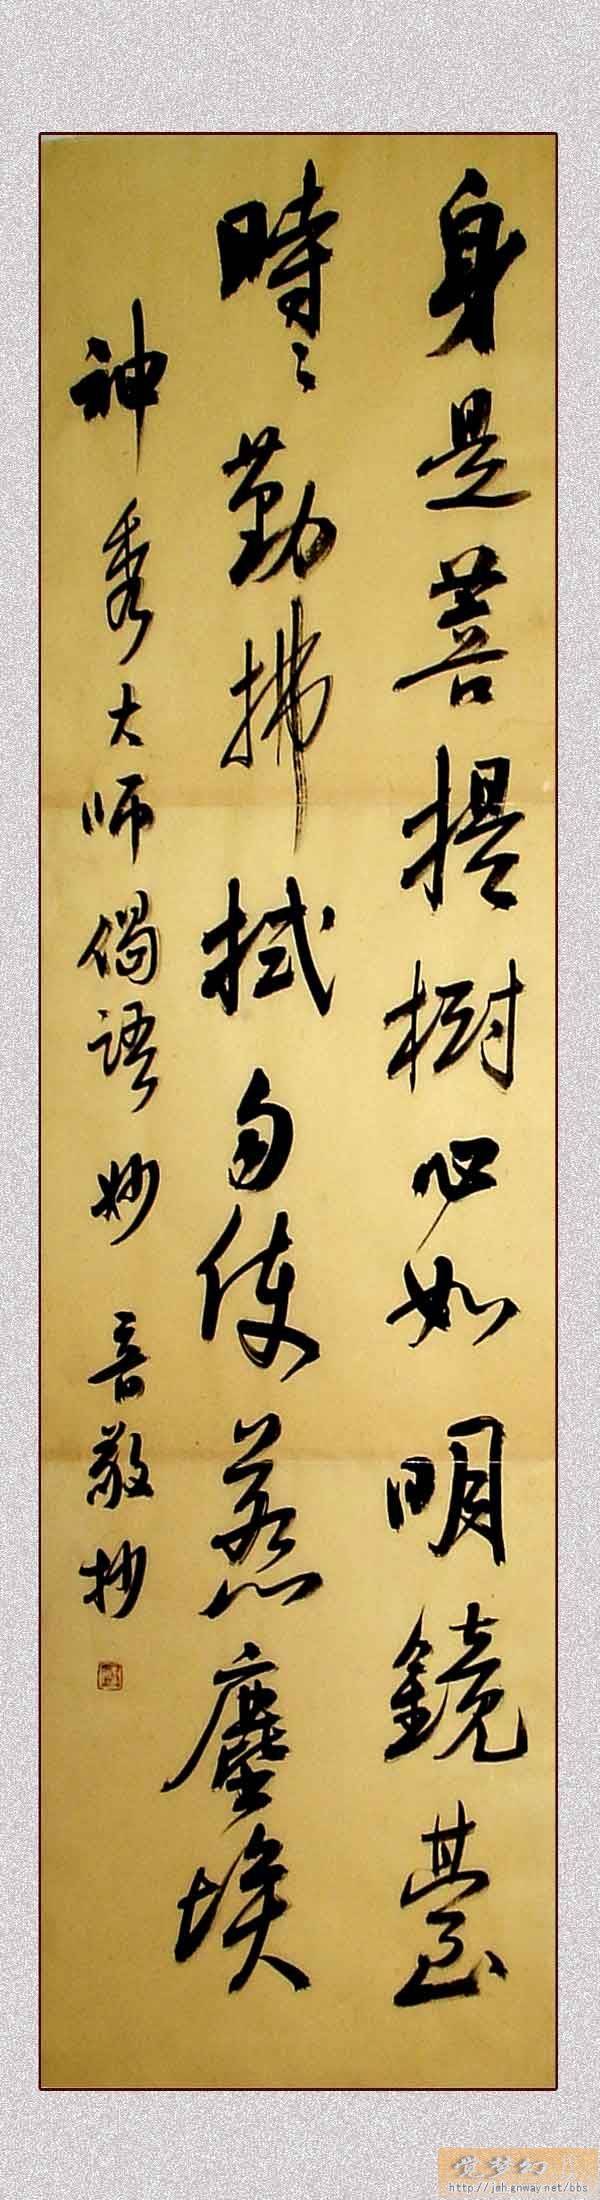 身是菩提樹心如明鏡臺
時々勤拂拭勿使惹塵埃
神秀大師偈語妙音敬抄
覺夢幻
http://jmh.gnway.net/bbs